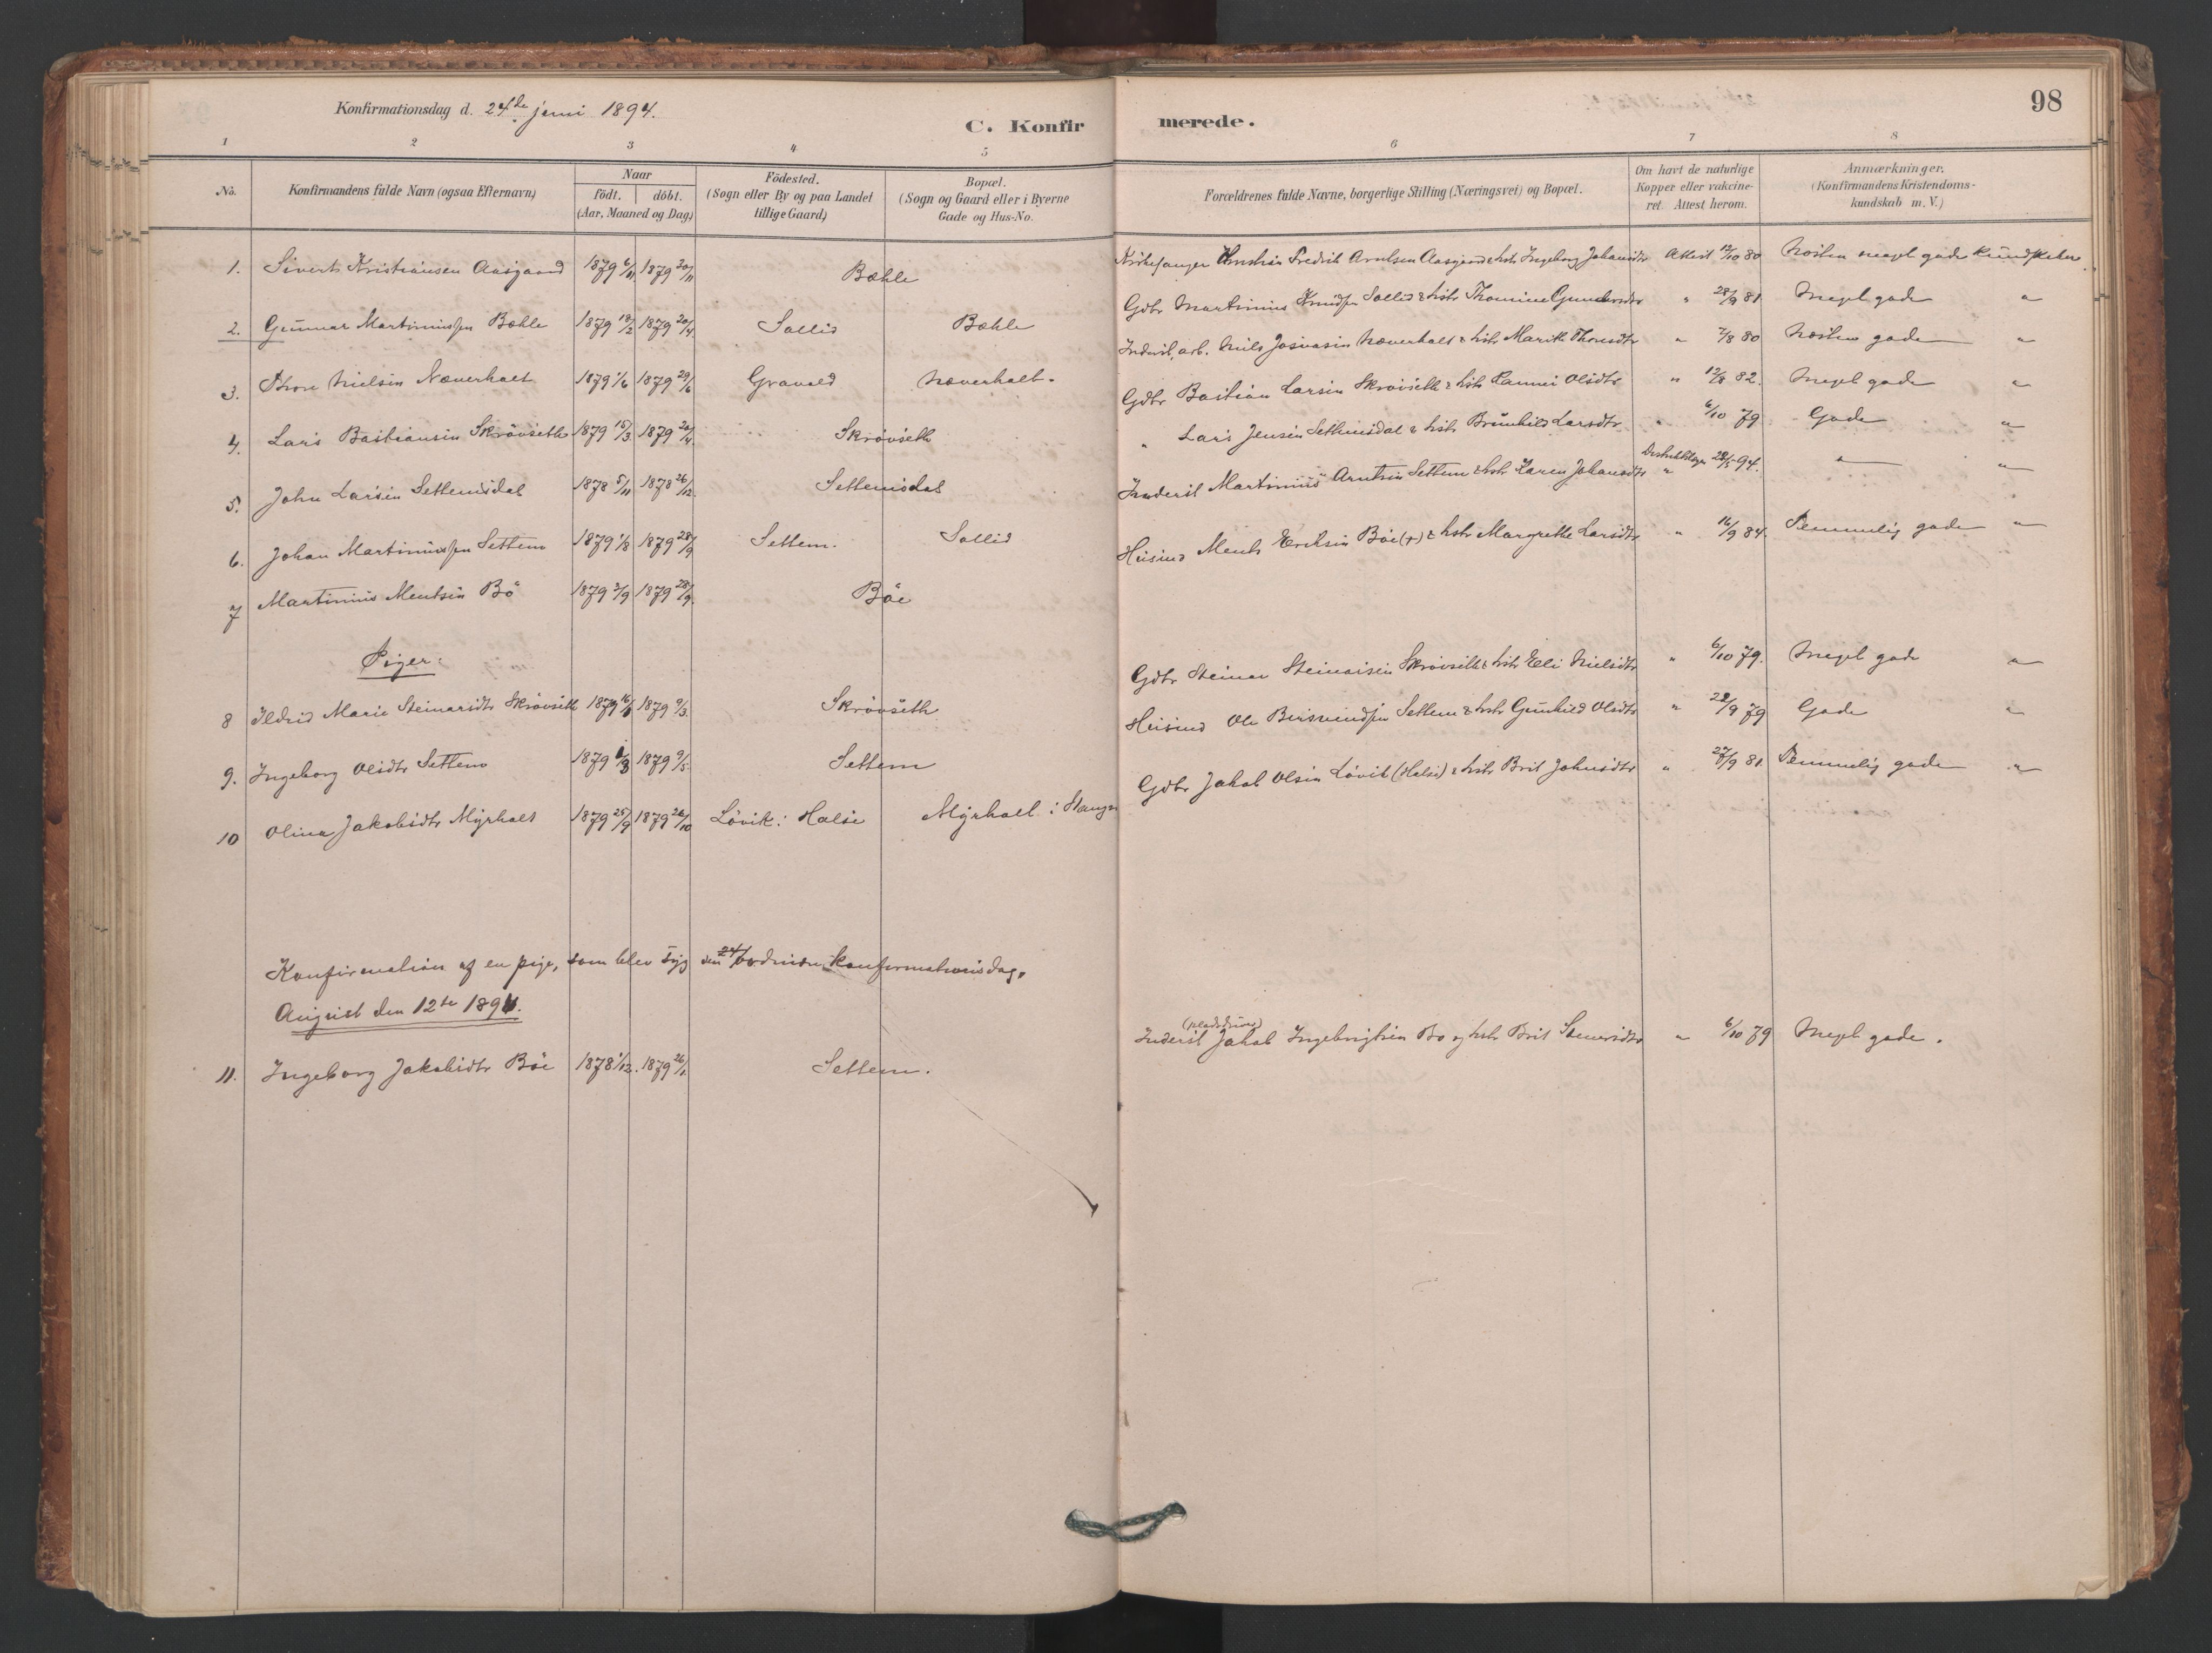 Konfirmationsdag d. 24de juni 1894.
C. Konfirmerede.
98
1 2 3 4 5 6 7 8
No.
Konfirmandens fulde Navn (ogsaa Efternavn)
Naar
födt. döbt.
(Aar, Maaned og Dag)
Födested.
(Sogn eller By og paa Landet
tillige Gaard)
Bopæl.
(Sogn og Gaard eller i Byerne
Gade og Hus-No.
Forældrenes fulde Navne, borgerlige Stilling (Næringsvei) og Bopæl.
Om havt de naturlige
Kopper eller vakcine-
ret. Attest herom.
Anmærkninger.
(Konfirmandens Kristendoms-
kundskab m. V.)
1. Sivert Kristiansen Aasgaard 1879 6/11 1879 20/11 Bæhle Kirkesanger Fredrik Arntsen Aasgaard & hstr Ingeborg Johansdtr Attest 12/10 80 Næsten meget gode kundskaber.
2. Gunnar Martinussen Bæhle 1879 18/2 1879 20/4 Sollid Bæhle Gdbr Martinius Knudsen Sollid & hstr Thomine Gundersdtr " 28/9 81 Meget gode "
3. Thore Nielsen Næverholt 1879 1/6 1879 29/6 Gravold Næverholt. arb. Nils Næverholt & hstr Marith Thoresdtr " 7/8 80 Næsten gode "
4. Lars Bastiansen Skrövseth 1879 15/3 1879 20/4 Skrövseth Gdbr Bastian Larsen Skrövseth & hstr Olsdtr " 12/8 82. Meget gode "
5. John Larsen Settemsdal 1878 5/11 1878 26/12 Settemsdal " Lars Jensen Settemsdal & hstr Brünhild Larsdtr " 6/10 79 Gode "
6. Johan Martinussen Settem 1879 1/8 1879 28/9 Settem. Sollid Inderst Martinius Arntsen Settem & hstr Karen Johansdtr 28/5 94. " "
7 Martinius Mentsen Bö 1879 3/9 1879 28/9 Böe Husmd Ments Eriksen Böe (+) & hstr Margrethe Larsdtr " 16/9 84. Temmelig gode "
Piger:
8 Ildrid Marie Steinarsdtr Skrövseth 1879 1879 9/3. Skrövseth Gdbr Steinar Steinarsen Skrövseth & hstr Eli Nielsdtr " 6/10 79. Meget gode "
9. Ingeborg Olsdtr Settem 1879 1/3 1879 9/5. Settem Husmd Ole Settem & hstr Gunhild Olsdtr " 22/9 79 Gode "
10 Olina Jakobsdtr Myrholt 1879 25/9 1879 26/10 Lövik i Halse Myrholt i Gdbr Jakob Olsen Lövik (Halse) & hstr Brit Johnsdtr " 27/9 81. Temmelig gode "
Konfirmation af en pige, som blev syg den ordinære konfirmationsdag,
August den 12te 1894.
(pladsdriver)
11. Ingeborg Jakobsdtr Böe 1878 1/12. 1879 26/1. Settem. Inderst Jakob Ingebrigtsen Bö og hstr Brit " 6/10 79 Meget gode.